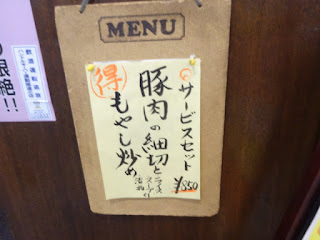 MENU
サービスセット
¥850
豚肉の細切と
ライス
スープ付
漬物
得
もやし炒め
根絶!!